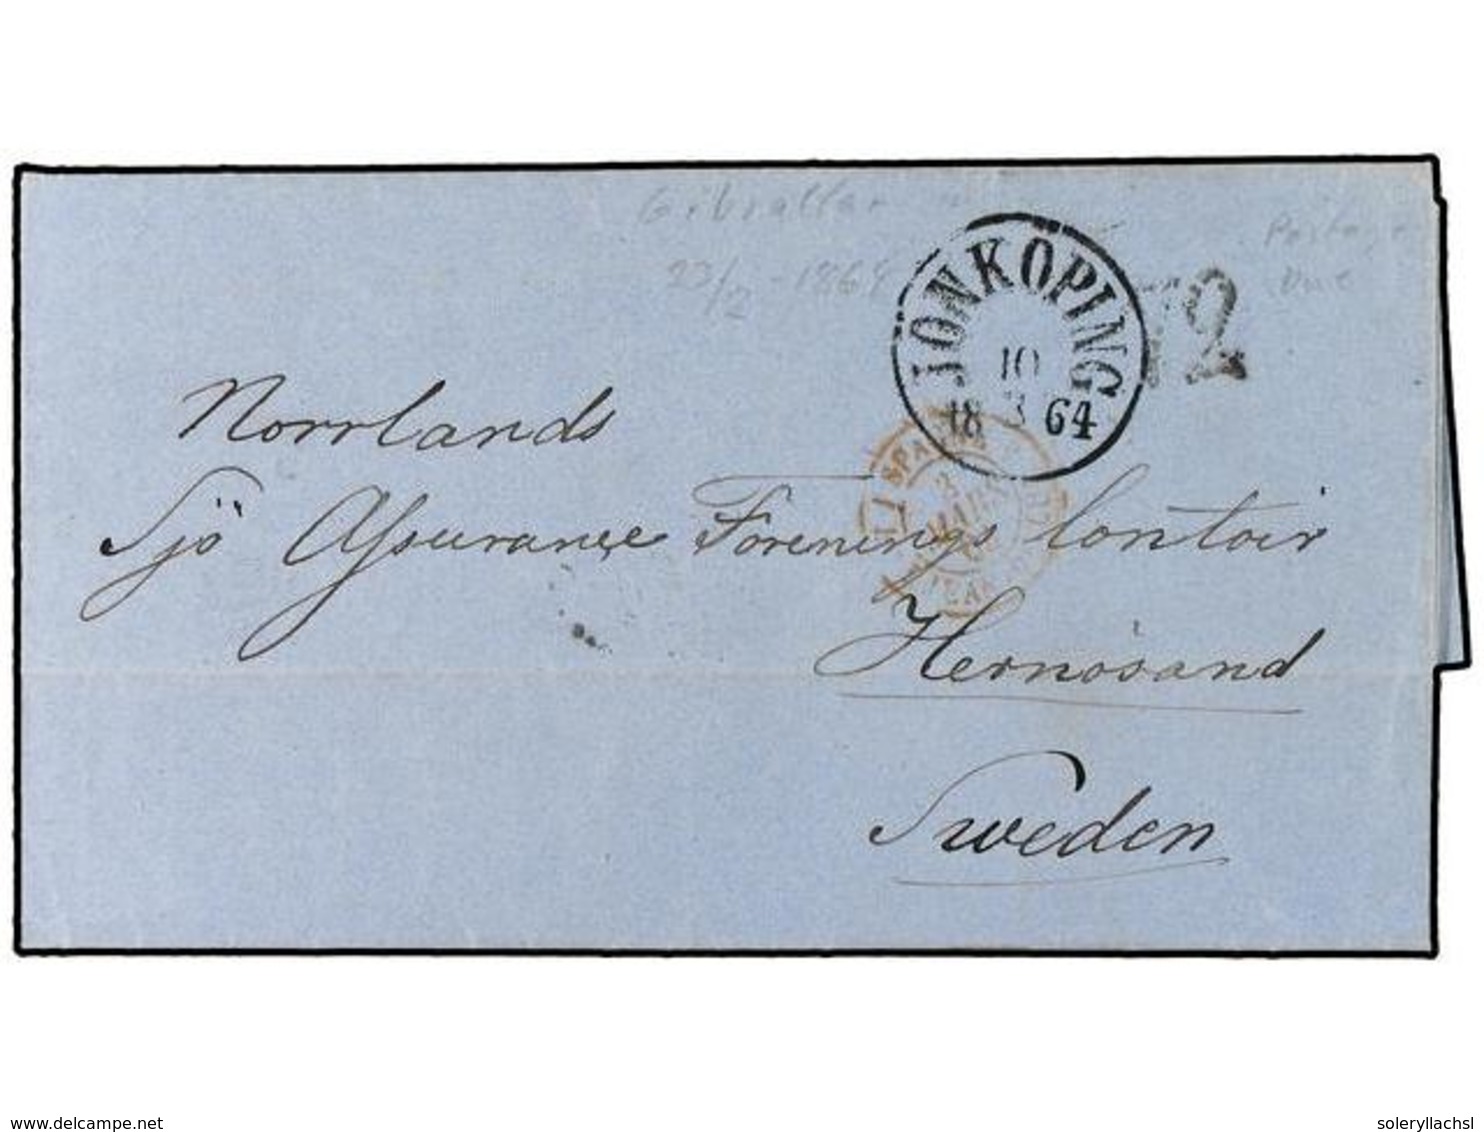 Gibraltar
23/2 - 1864
Postage
Due
JÖNKÖPING
10
18 3 64
12
Norrlands
Sjö Assurance Forenings Contoir
Hernösand
Sweden
delcampe.net
soleryllachsl